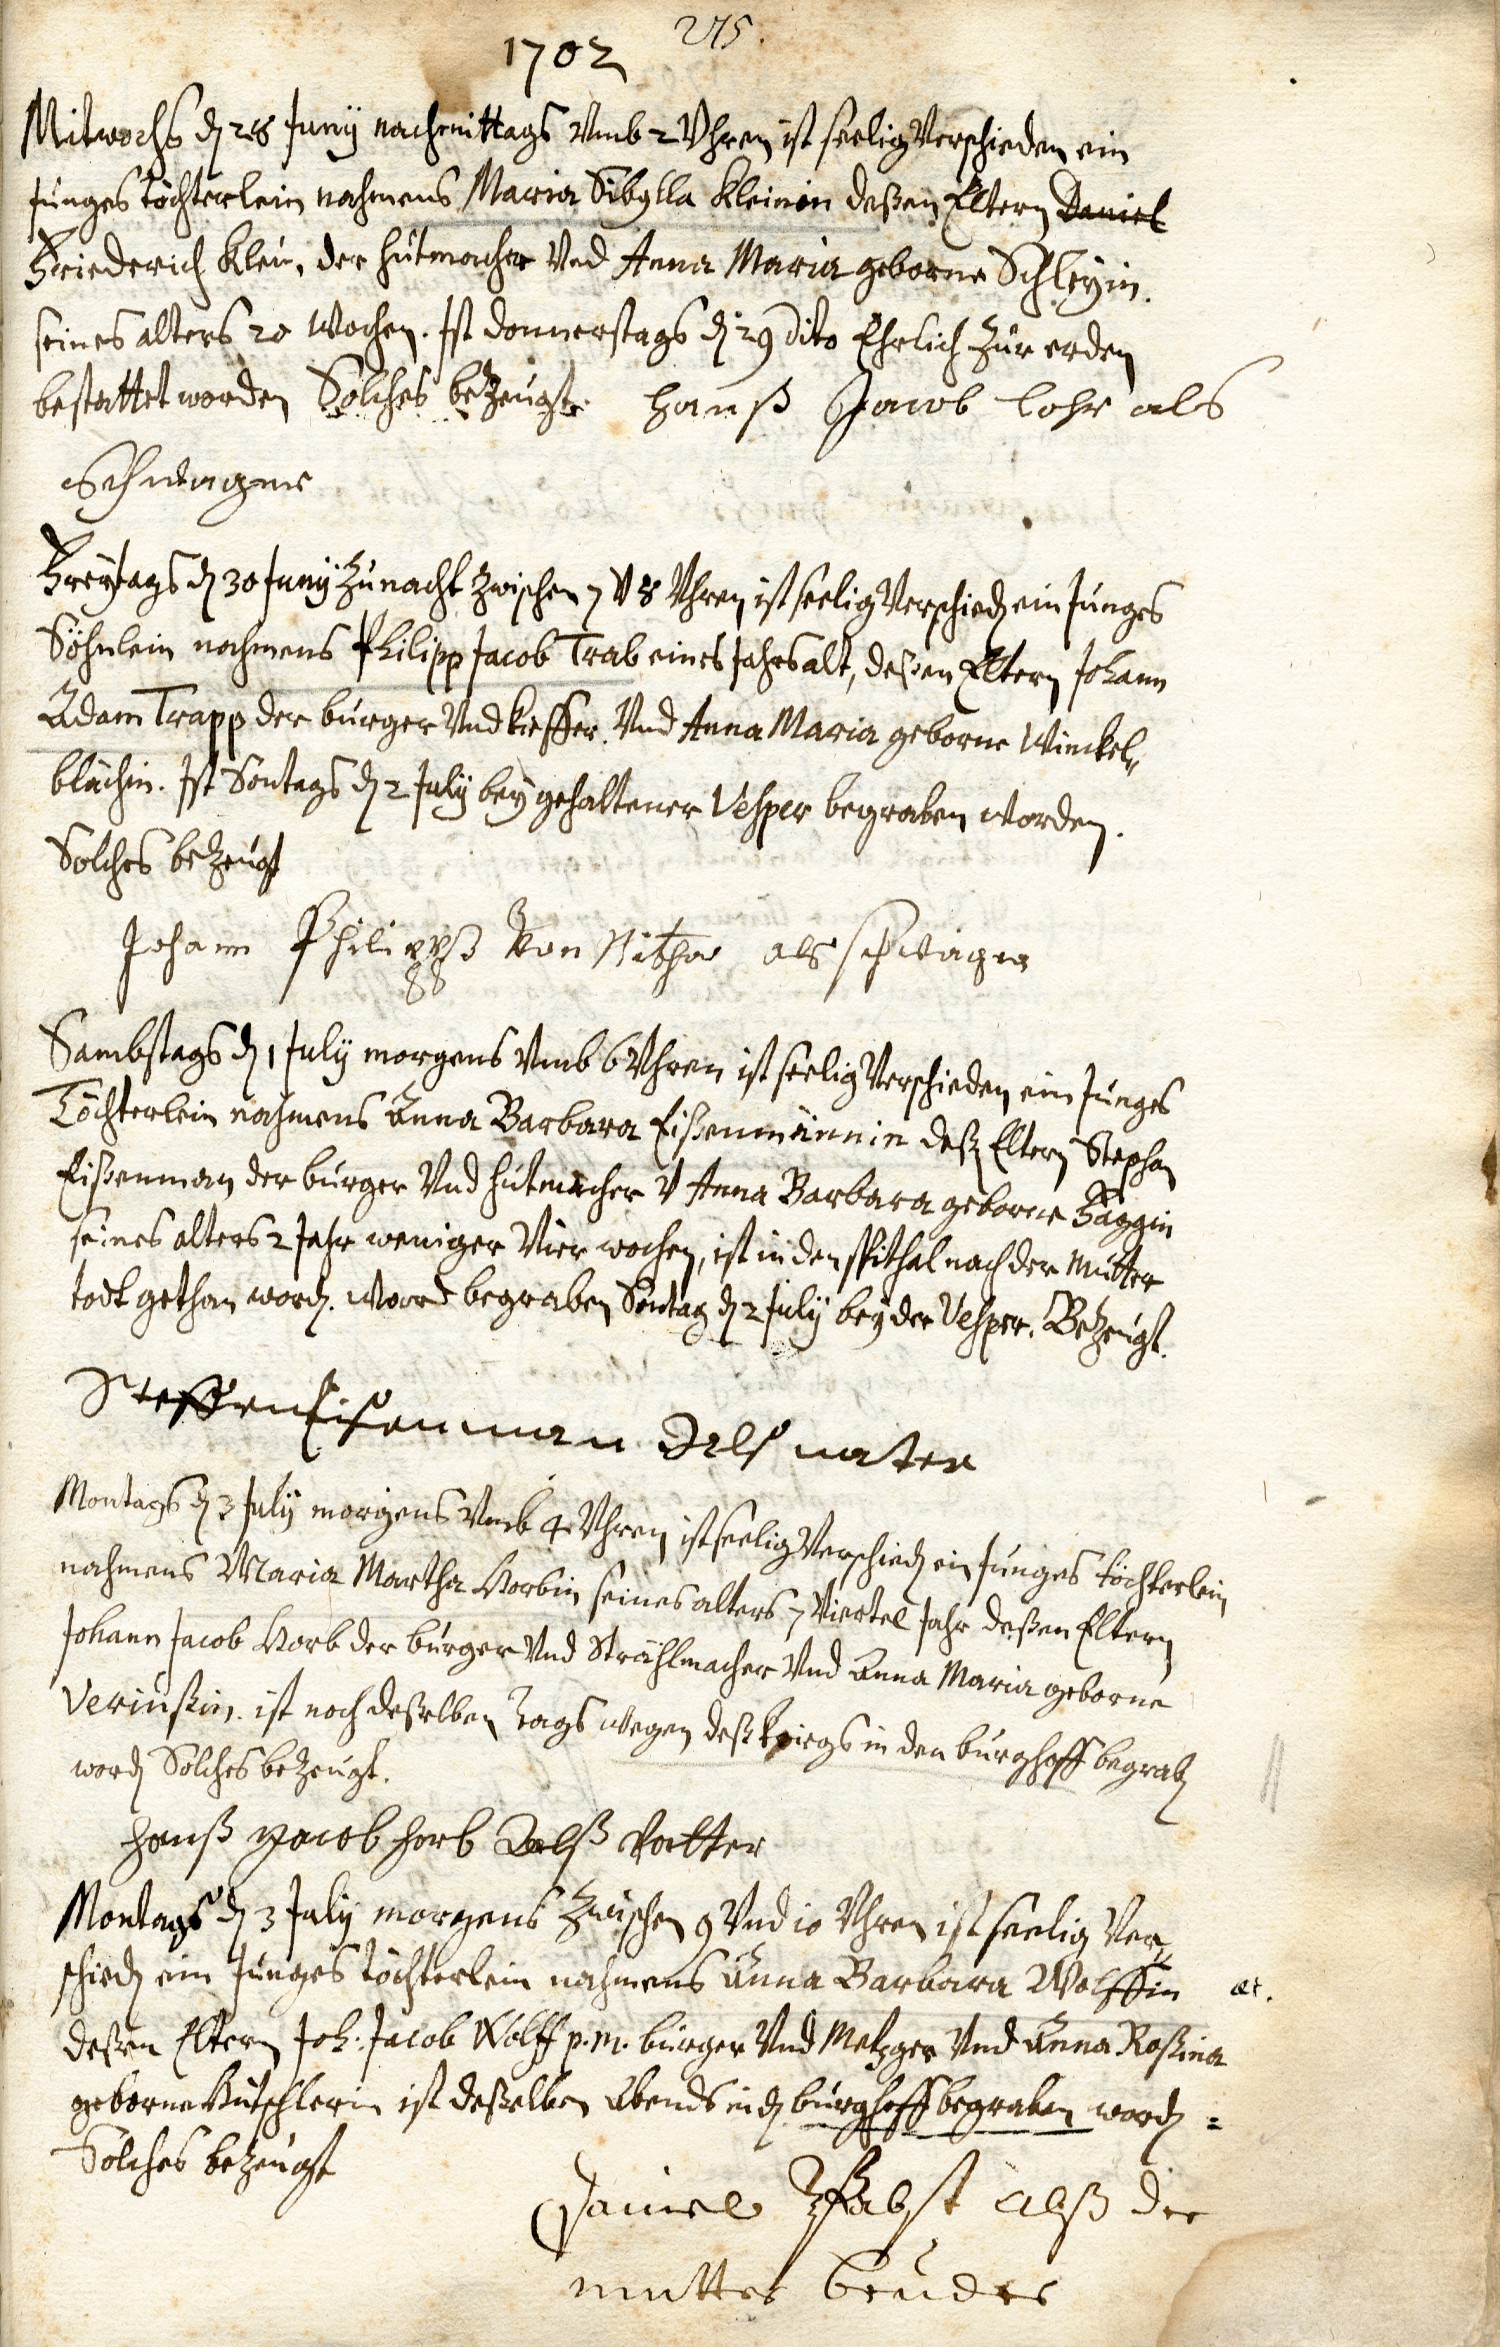 275.
1702
Mitwochs dn 28 Juny nachmittags Vmb 2 Vhren ist seelig Verschieden ein
junges töchterlein nahmens Maria Sibylla Kleinin deßen Eltern Daniel
Friederich Klein, der hutmacher Vnd Anna Maria geborne Schleyin.
seines alters 20 Wochen. Ist donnerstags dn 29 dito Ehrlich zur erden
bestattet worden Solches bezeugt. Hanß Jacob Lohr als
Schwager
Freytags dn 30 Juny zu nacht zwischen 7 V 8 Vhren ist seelig Verschiedn ein Junges
Söhnlein nahmens Philipp Jacob Trab eines Jahrs alt, deßen Eltern Johann
Adam Trapp der burger Vnd kieffer. Vnd Anna Maria geborne Winckel„
blächin. Ist Sontags dn 2 July bey gehaltener Vesper begraben worden.
Solches bezeugt
Johann Philippß Von als schwager
Sambstags dn 1 July morgens Vmb 6 Vhren ist seelig Verschieden ein Junges
Töchterlein nahmens Anna Barbara Eißenmännin deßn Eltern Stephan
Eißenman der burger Vnd hutmacher V Anna Barbara geborne Häggin
seines alters 2 Jahr weniger Vier wochen, ist in den spithal nach der Mutter
todt gethan wordn. Word begraben Sontag dn 2 July bey der Vesper. Bezeugt.
Steffen Eisenman Als vater
Montags dn 3 July morgens Vmb 4 Vhren ist seelig Verschiedn ein Junges töchterlein
nahmens Maria Martha Horbin seines alters 7 Viertel Jahr deßen Eltern
Johann Jacob Horb der burger Vnd Strählmacher Vnd Anna Maria geborne
Verinßin. ist noch deßelben Tags wegen deß kriegs in den burghoff begrabn
wordn Solches bezeugt.
Hanß Jacob Horb Alß Vatter
Montags dn 3 July morgens Zwischen 9 Vnd 10 Vhren ist seelig Ver„
schiedn ein Junges töchterlein nahmens Anna Barbara Wolffin æt.
deßen Eltern Joh: Jacob Wolff p.m. burger Vnd Metzger Vnd Anna Roßina
geborne Kutschlerin ist deßelben Abends in dn burghoff begraben wordn =
Solches bezeugt
Daniel Pfabst Alß der
mutter bruder